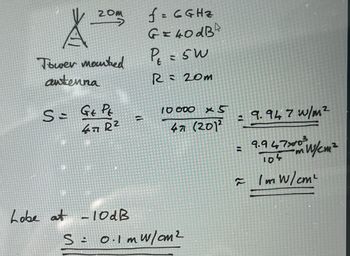 20m
f = 6GHz
G = 40dB
Tower mounted
antenna
Pt = 5W
R = 20m
S = Gt Pt / 4π R² = 10 000 × 5 / 4π (20)² = 9.947 W/m²
= 9.947×10³ / 10⁴ mW/cm²
≈ 1mW/cm²
Lobe at -10dB
S = 0.1 mW/cm²